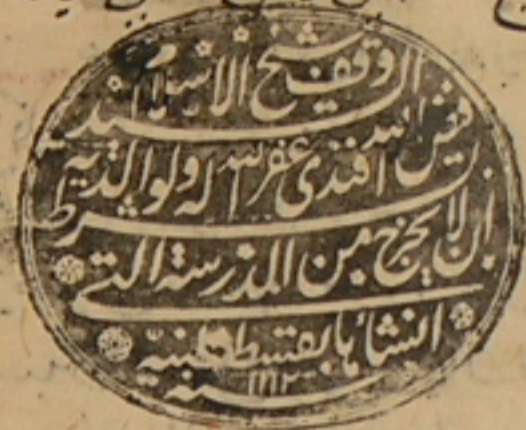 وقف شيخ الاسلام
السيد
فيض الله افندى غفر الله له ولوالديه
بشرط
ان لا يخرج من المدرسة التى
انشأها بقسطنطينية
سنه ١١١٢